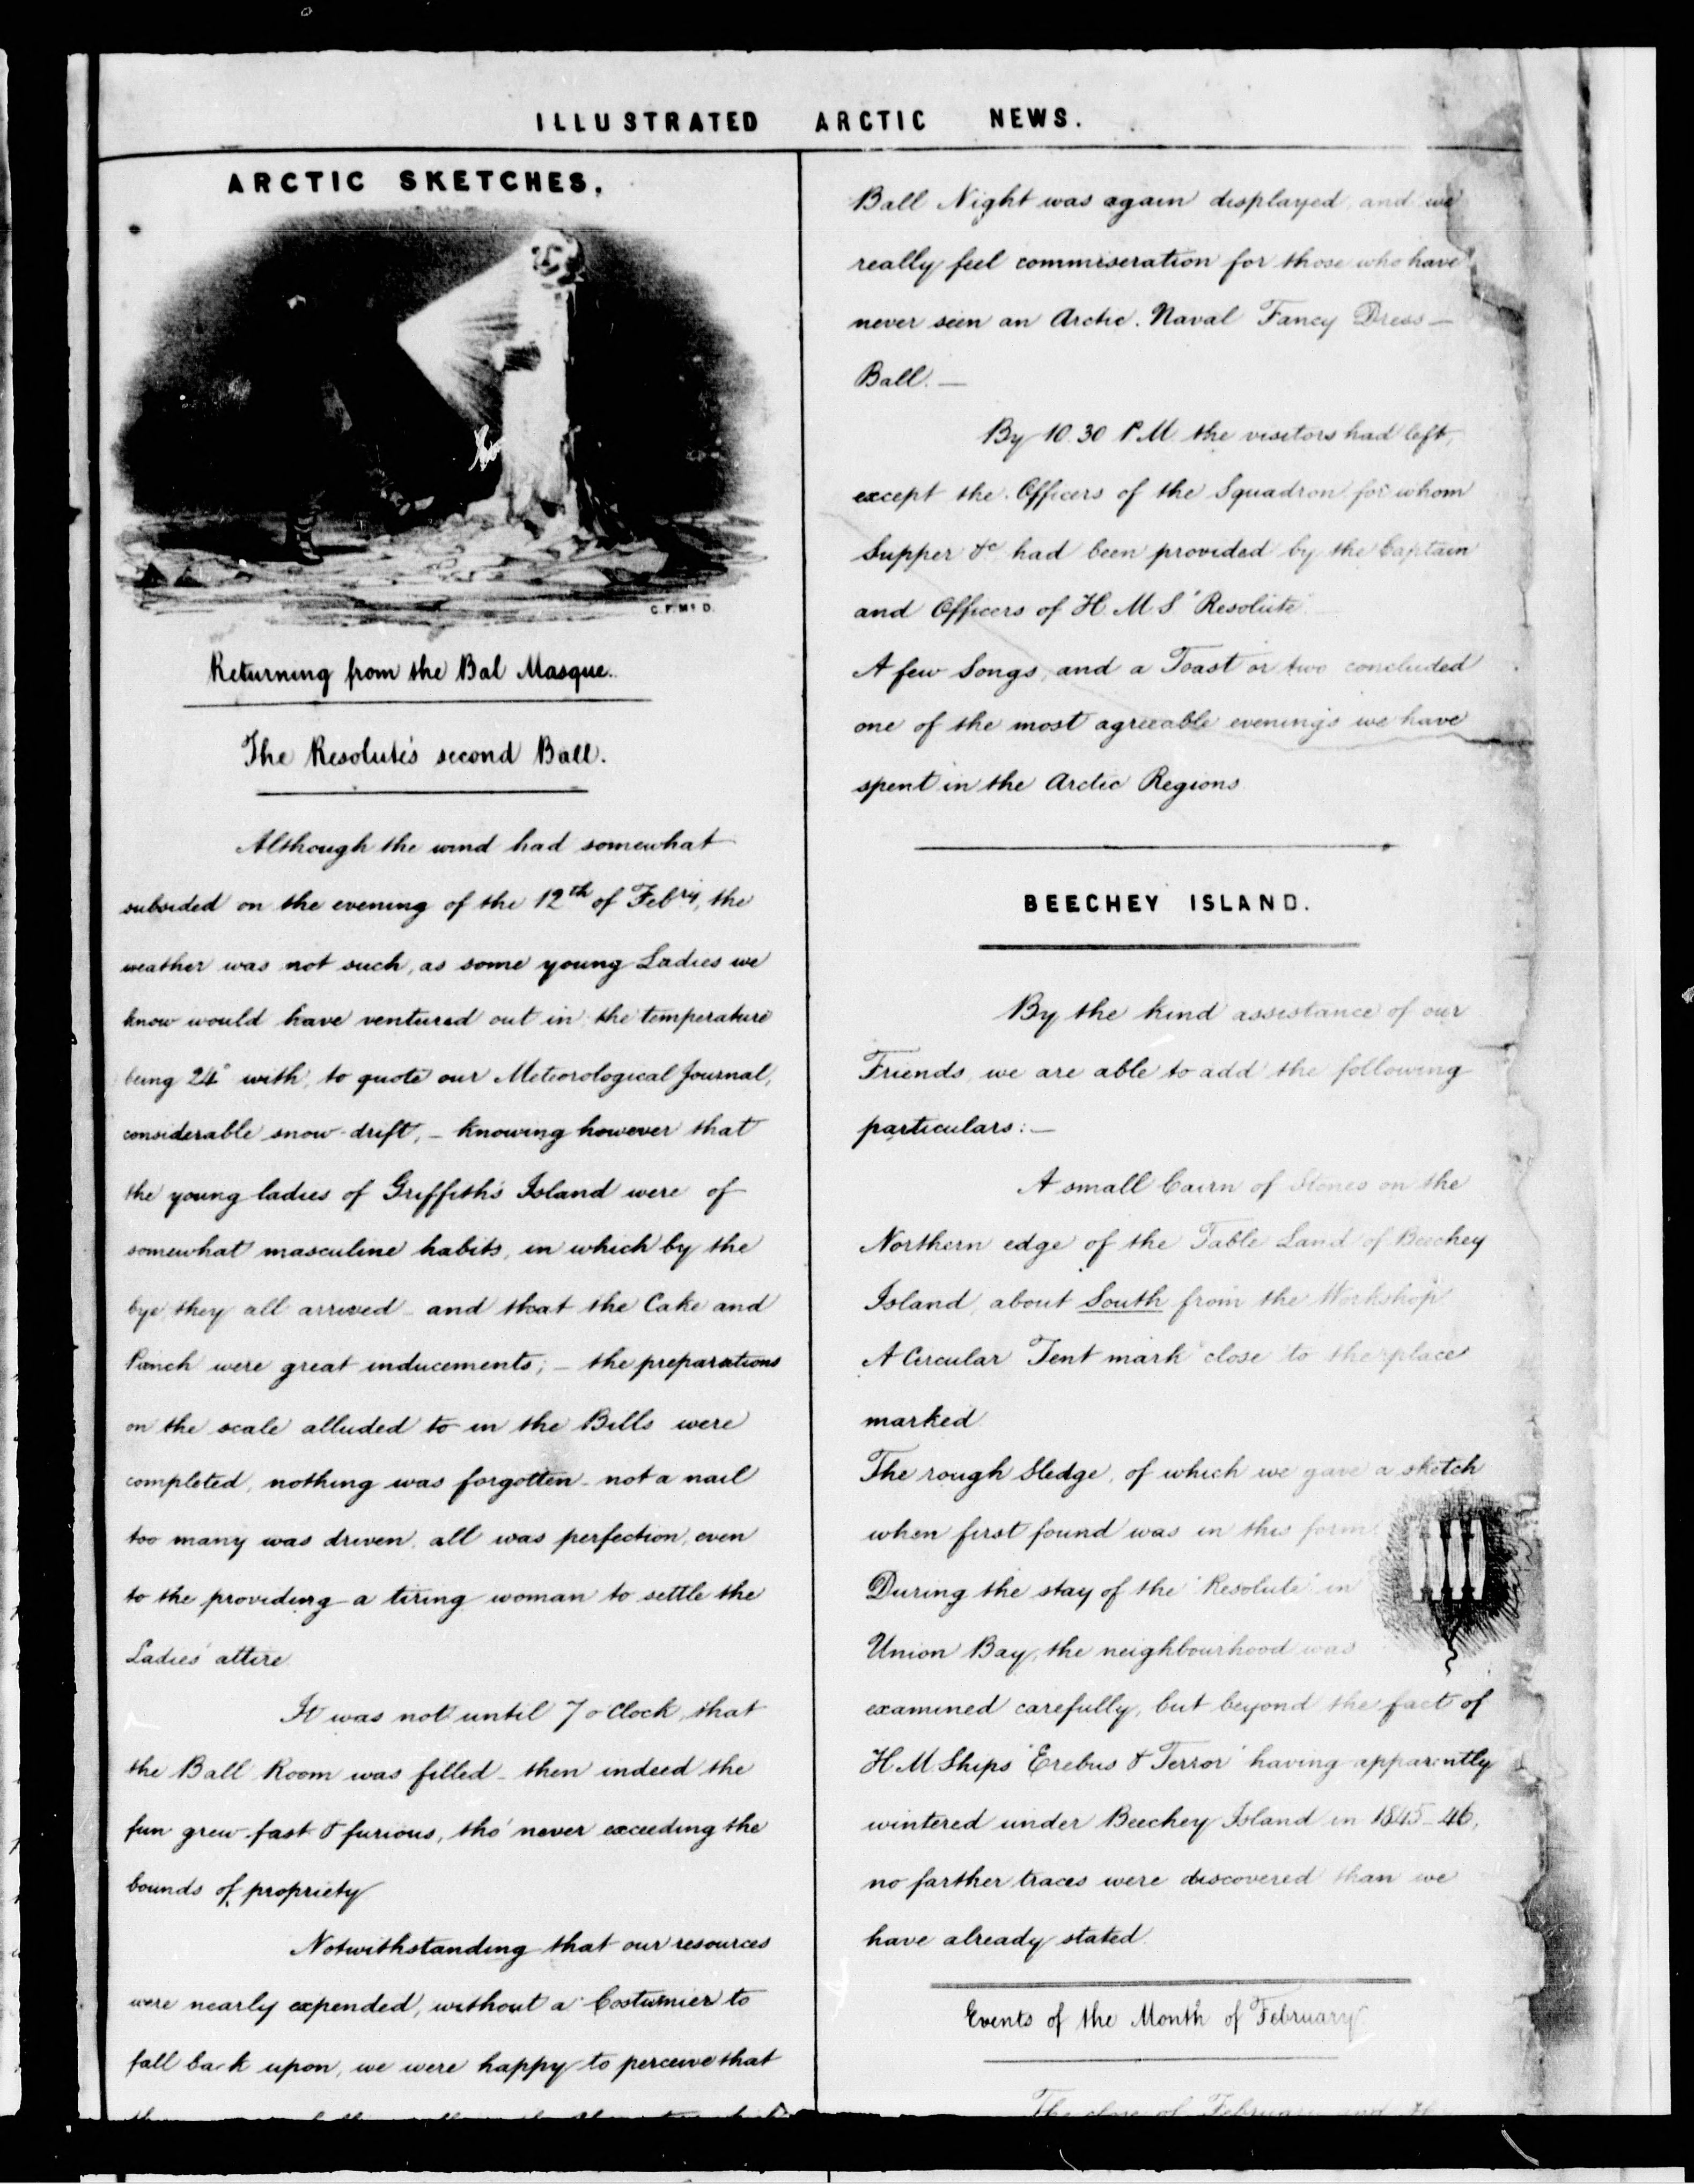 ILLUSTRATED ARCTIC NEWS.
ARCTIC SKETCHES.
C.F.McD.
Returning from the Bal Masque.
The Resolute's second Ball.
Although the wind had somewhat
subsided on the evening of the 12th of Febry, the
weather was not such, as some young Ladies we
know would have ventured out in, the temperature
being 24° with, to quote our Meteorological Journal,
considerable snow-drift, – knowing however that
the young ladies of Griffith's Island were of
somewhat masculine habits, in which by the
bye, they all arrived – and that the Cake and
Punch were great inducements; – the preparations
on the scale alluded to in the Bills were
completed, nothing was forgotten – not a nail
too many was driven, all was perfection, even
to the providing a tiring woman to settle the
Ladies' attire.
It was not until 7 o'Clock, that
the Ball Room was filled – then indeed the
fun grew fast & furious, tho' never exceeding the
bounds of propriety
Notwithstanding that our resources
were nearly expended, without a Costumier to
fall back upon, we were happy to perceive that
Ball Night was again displayed, and we
really feel commiseration for those who have
never seen an Arctic. Naval Fancy Dress –
Ball. –
By 10.30 P.M. the visitors had left,
except the Officers of the Squadron for whom
Supper &c had been provided by the Captain
and Officers of H.M.S "Resolute"
A few Songs, and a Toast or two concluded
one of the most agreeable evenings we have
spent in the Arctic Regions.
BEECHEY ISLAND.
By the kind assistance of our
Friends, we are able to add the following
particulars: –
A small Cairn of Stones on the
Northern edge of the Table Land of Beechey
Island, about South from the Workshop
A Circular Tent mark close to the place
marked.
The rough Sledge, of which we gave a sketch
when first found was in this form.
During the stay of the "Resolute" in
Union Bay, the neighbourhood was
examined carefully, but beyond the fact of
H.M.Ships "Erebus & Terror" having apparently
wintered under Beechey Island in 1845–46,
no farther traces were discovered than we
have already stated.
Events of the Month of February
The close of February and